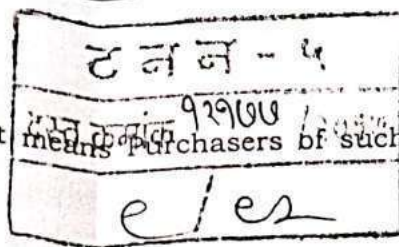 ट न न - ५
दस्त क्रमांक १२१७७ /
t means Purchasers of such